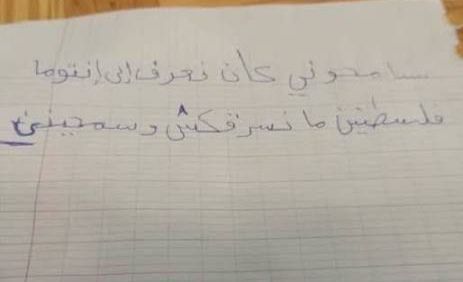 سامحوني كان نعرف إلى إنتوما
فلسطين ما نسرقكش وسمحيني